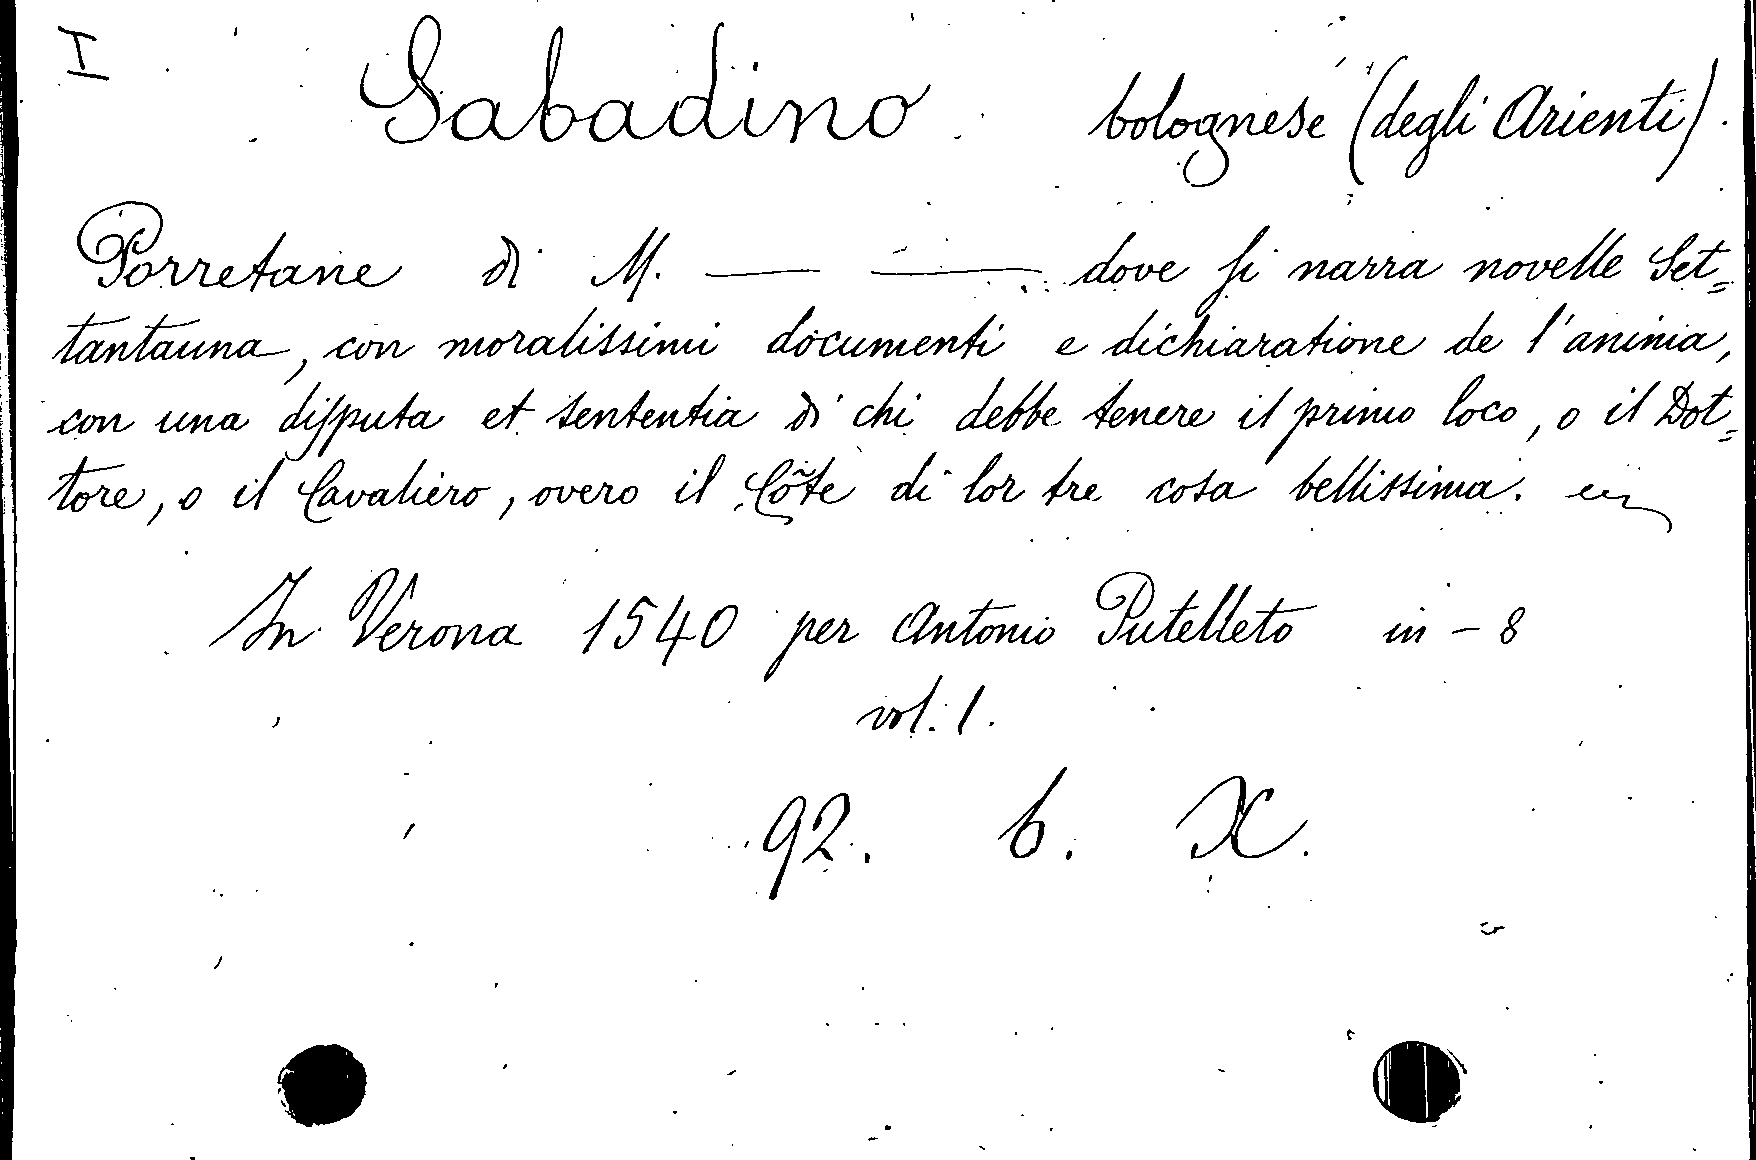 I
Sabadino bolognese (degli Arienti).
Porretane di M. —— ——. dove ſi narra novelle Set=
tantauna, con moralissimi documenti e dichiaratione de l'anima,
con una diſputa et sententia di chi debbe tenere il primo loco, o il Dot=
tore, o il Cavaliero, overo il Cõte di lor tre cosa bellissima.
In Verona 1540 per Antonio Putelleto in-8
vol. 1.
92. b. X.